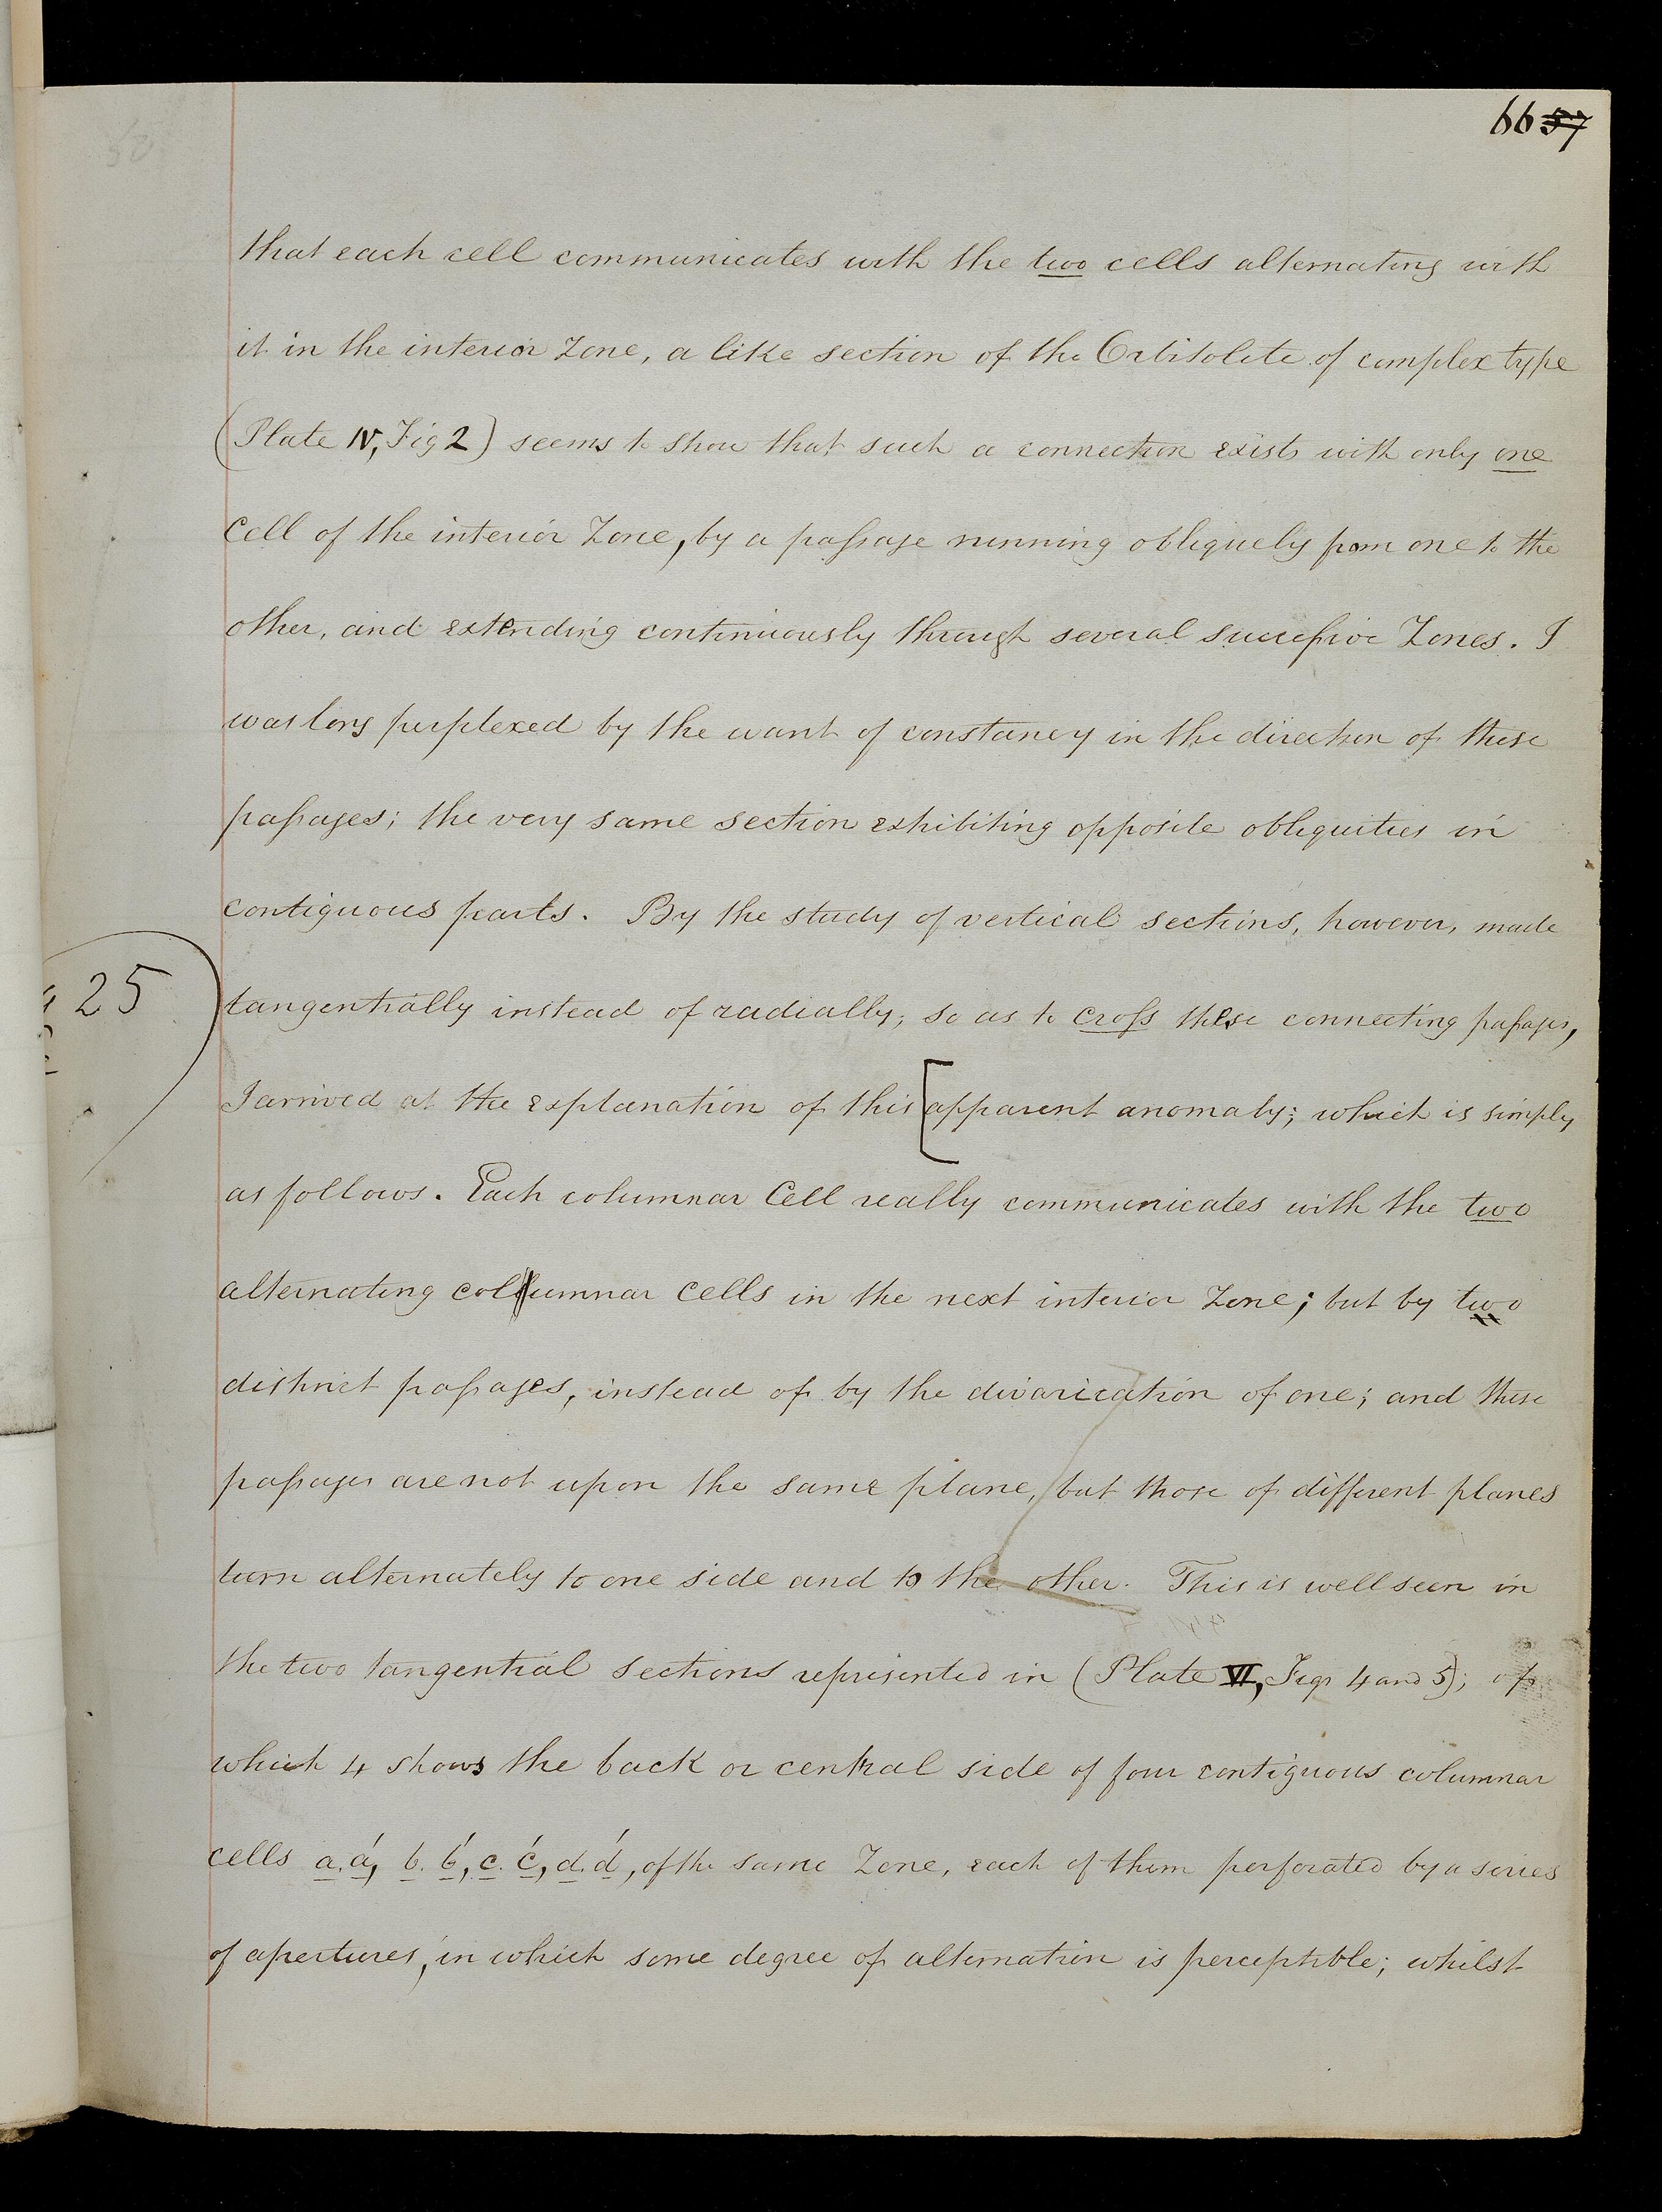 66 57
that each cell communicates with the two cells alternating with
it in the interior Zone, a like section of the Orbitolite of complex type
(Plate IV, Fig 2) seems to show that such a connection exists with only one
Cell of the interior Zone, by a passage running obliquely from one to the
other, and extending continuously through several successive Zones. I
was long perplexed by the want of constancy in the direction of these
passages; the very same section exhibiting opposite obliquities in
contiguous parts. By the study of vertical sections, however, made
25
tangentially instead of radially, so as to cross these connecting passages,
I arrived at the explanation of this [apparent anomaly; which is simply
as follows. Each columnar Cell really communicates with the two
alternating columnar Cells in the next interior Zone; but by two
distinct passages, instead of by the divarication of one; and these
passages are not upon the same plane, but those of different planes
turn alternately to one side and to the other. This is well seen in
the two tangential sections represented in (Plate VI, Figs 4 and 5); of
which 4 shows the back or central side of four contiguous columnar
cells a.a', b.b', c.c', d.d', of the same Zone, each of them perforated by a series
of apertures, in which some degree of alternation is perceptible; whilst